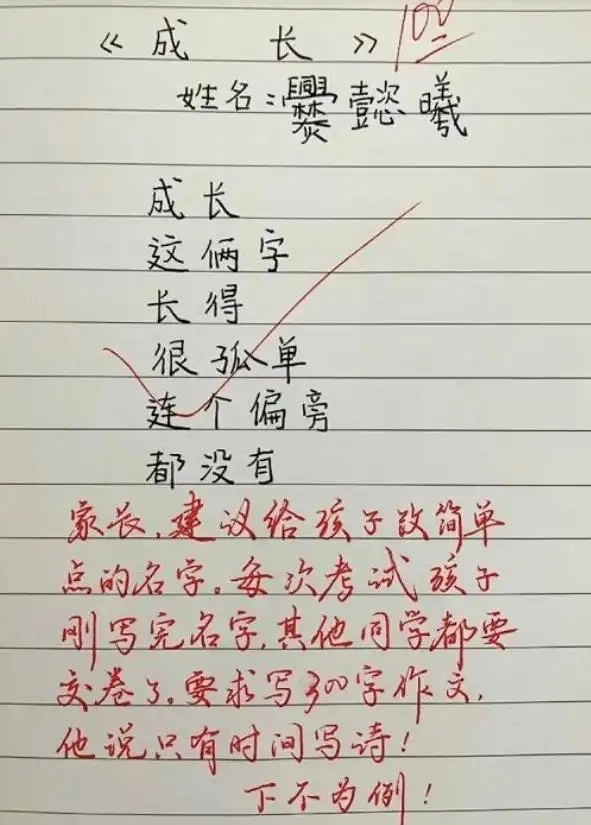 《成 长》 100
姓名：爨懿曦
成长
这俩字
长得
很孤单
连个偏旁
都没有
家长，建议给孩子改简单
点的名字。每次考试孩子
刚写完名字，其他同学都要
交卷了。要求写300字作文，
他说只有时间写诗！
下不为例！